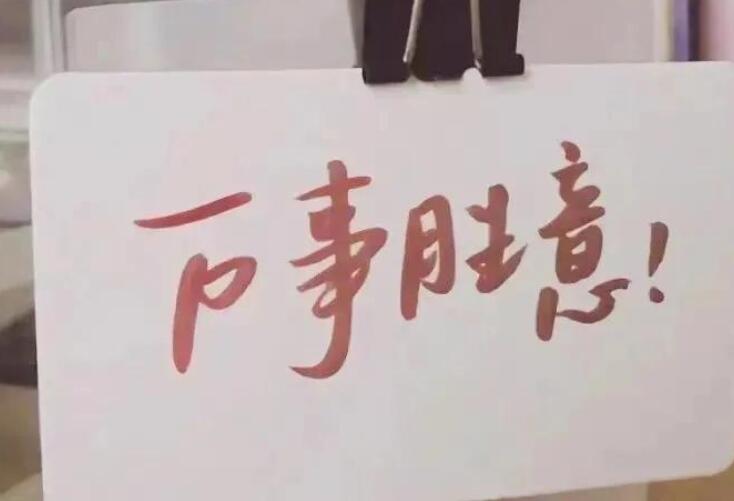 万事胜意!